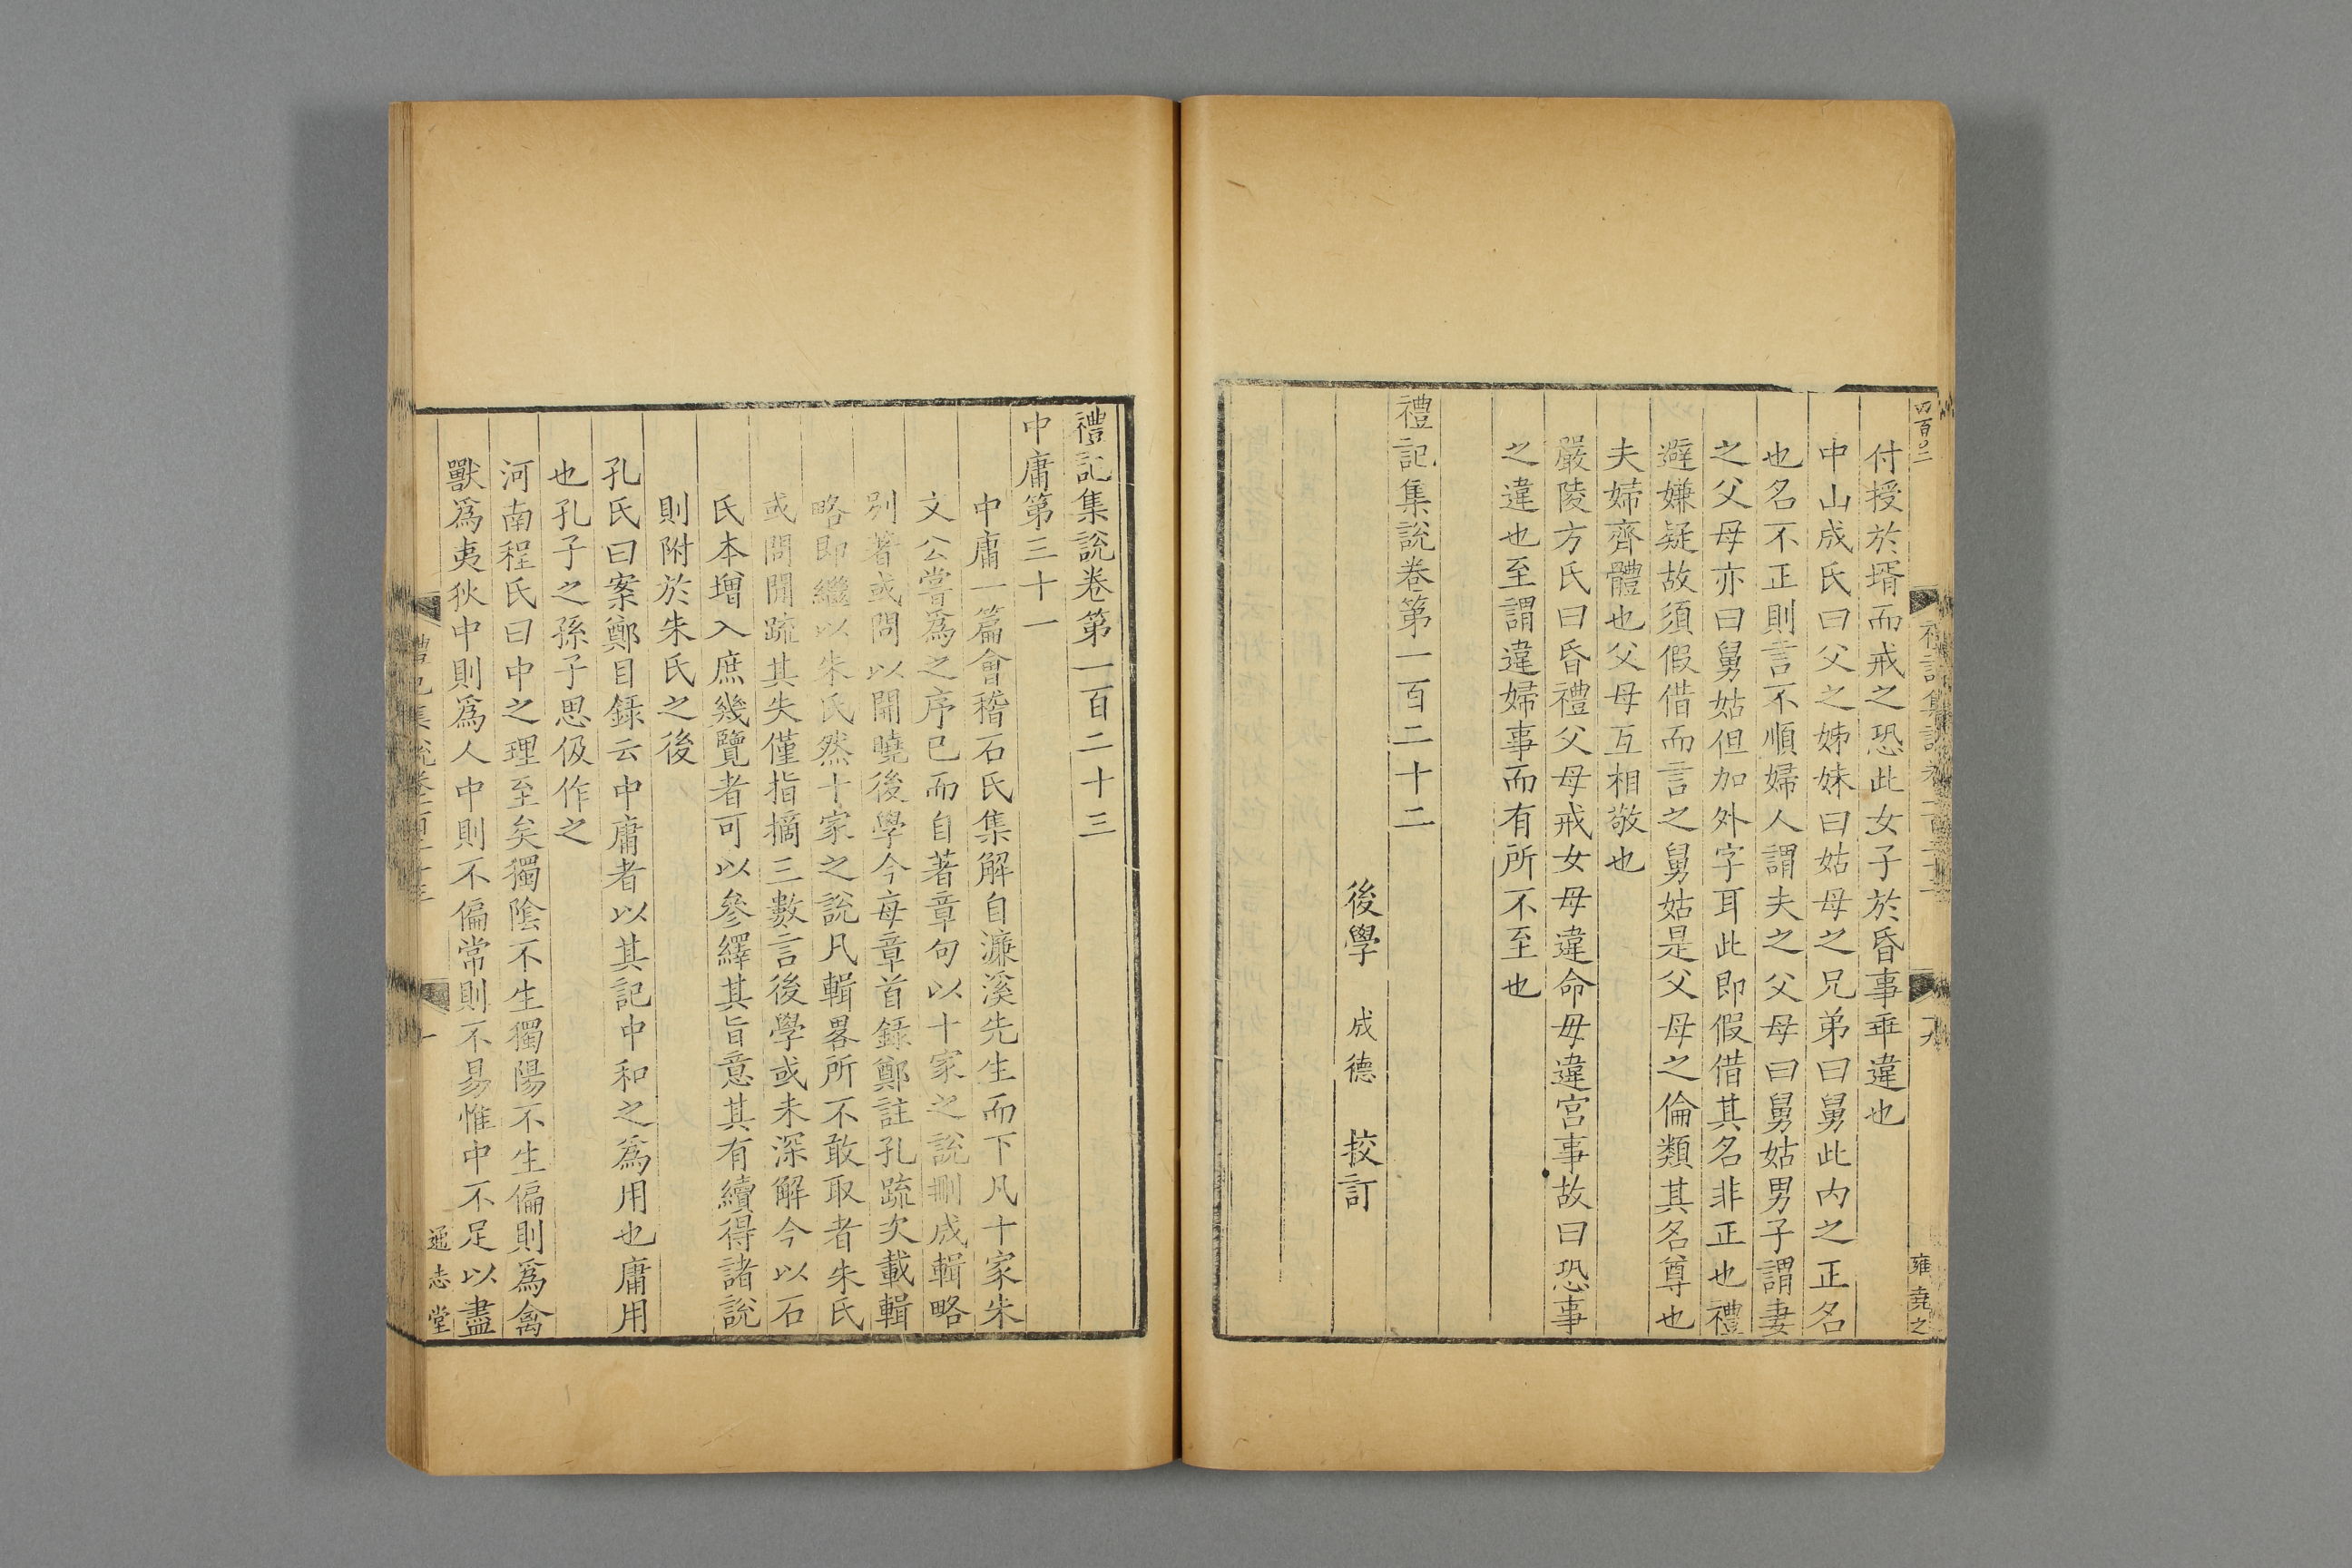 付授於壻而戒之恐此女子於昏事乖違也
中山成氏曰父之姊妹曰姑母之兄弟曰舅此内之正名
也名不正則言不順婦人謂夫之父母曰舅姑男子謂妻
之父母亦曰舅姑但加外字耳此即假借其名非正也禮
避嫌疑故須假借而言之舅姑是父母之倫類其名尊也
夫婦齊體也父母互相敬也
嚴陵方氏曰昏禮父母戒女母違命毋違宫事故曰恐事
之違也至謂違婦事而有所不至也
禮記集說卷第一百二十二
後學 成德 挍訂
雍尭之
禮記集說卷第一百二十三
中庸第三十一
中庸一篇會稽石氏集解自濂溪先生而下凡十家朱
文公嘗爲之序已而自著章句以十家之說刪成輯略
别著或問以開曉後學今每章首録鄭註孔疏次載輯
略即繼以朱氏然十家之說凡輯畧所不敢取者朱氏
或問閒疏其失僅指摘三數言後學或未深解今以石
氏本增入庶幾覽者可以參繹其旨意其有續得諸說
則附於朱氏之後
孔氏曰案鄭目録云中庸者以其記中和之爲用也庸用
也孔子之孫子思伋作之
河南程氏曰中之理至矣獨陰不生獨陽不生偏則爲禽
獸爲夷狄中則爲人中則不偏常則不易惟中不足以盡
通志堂